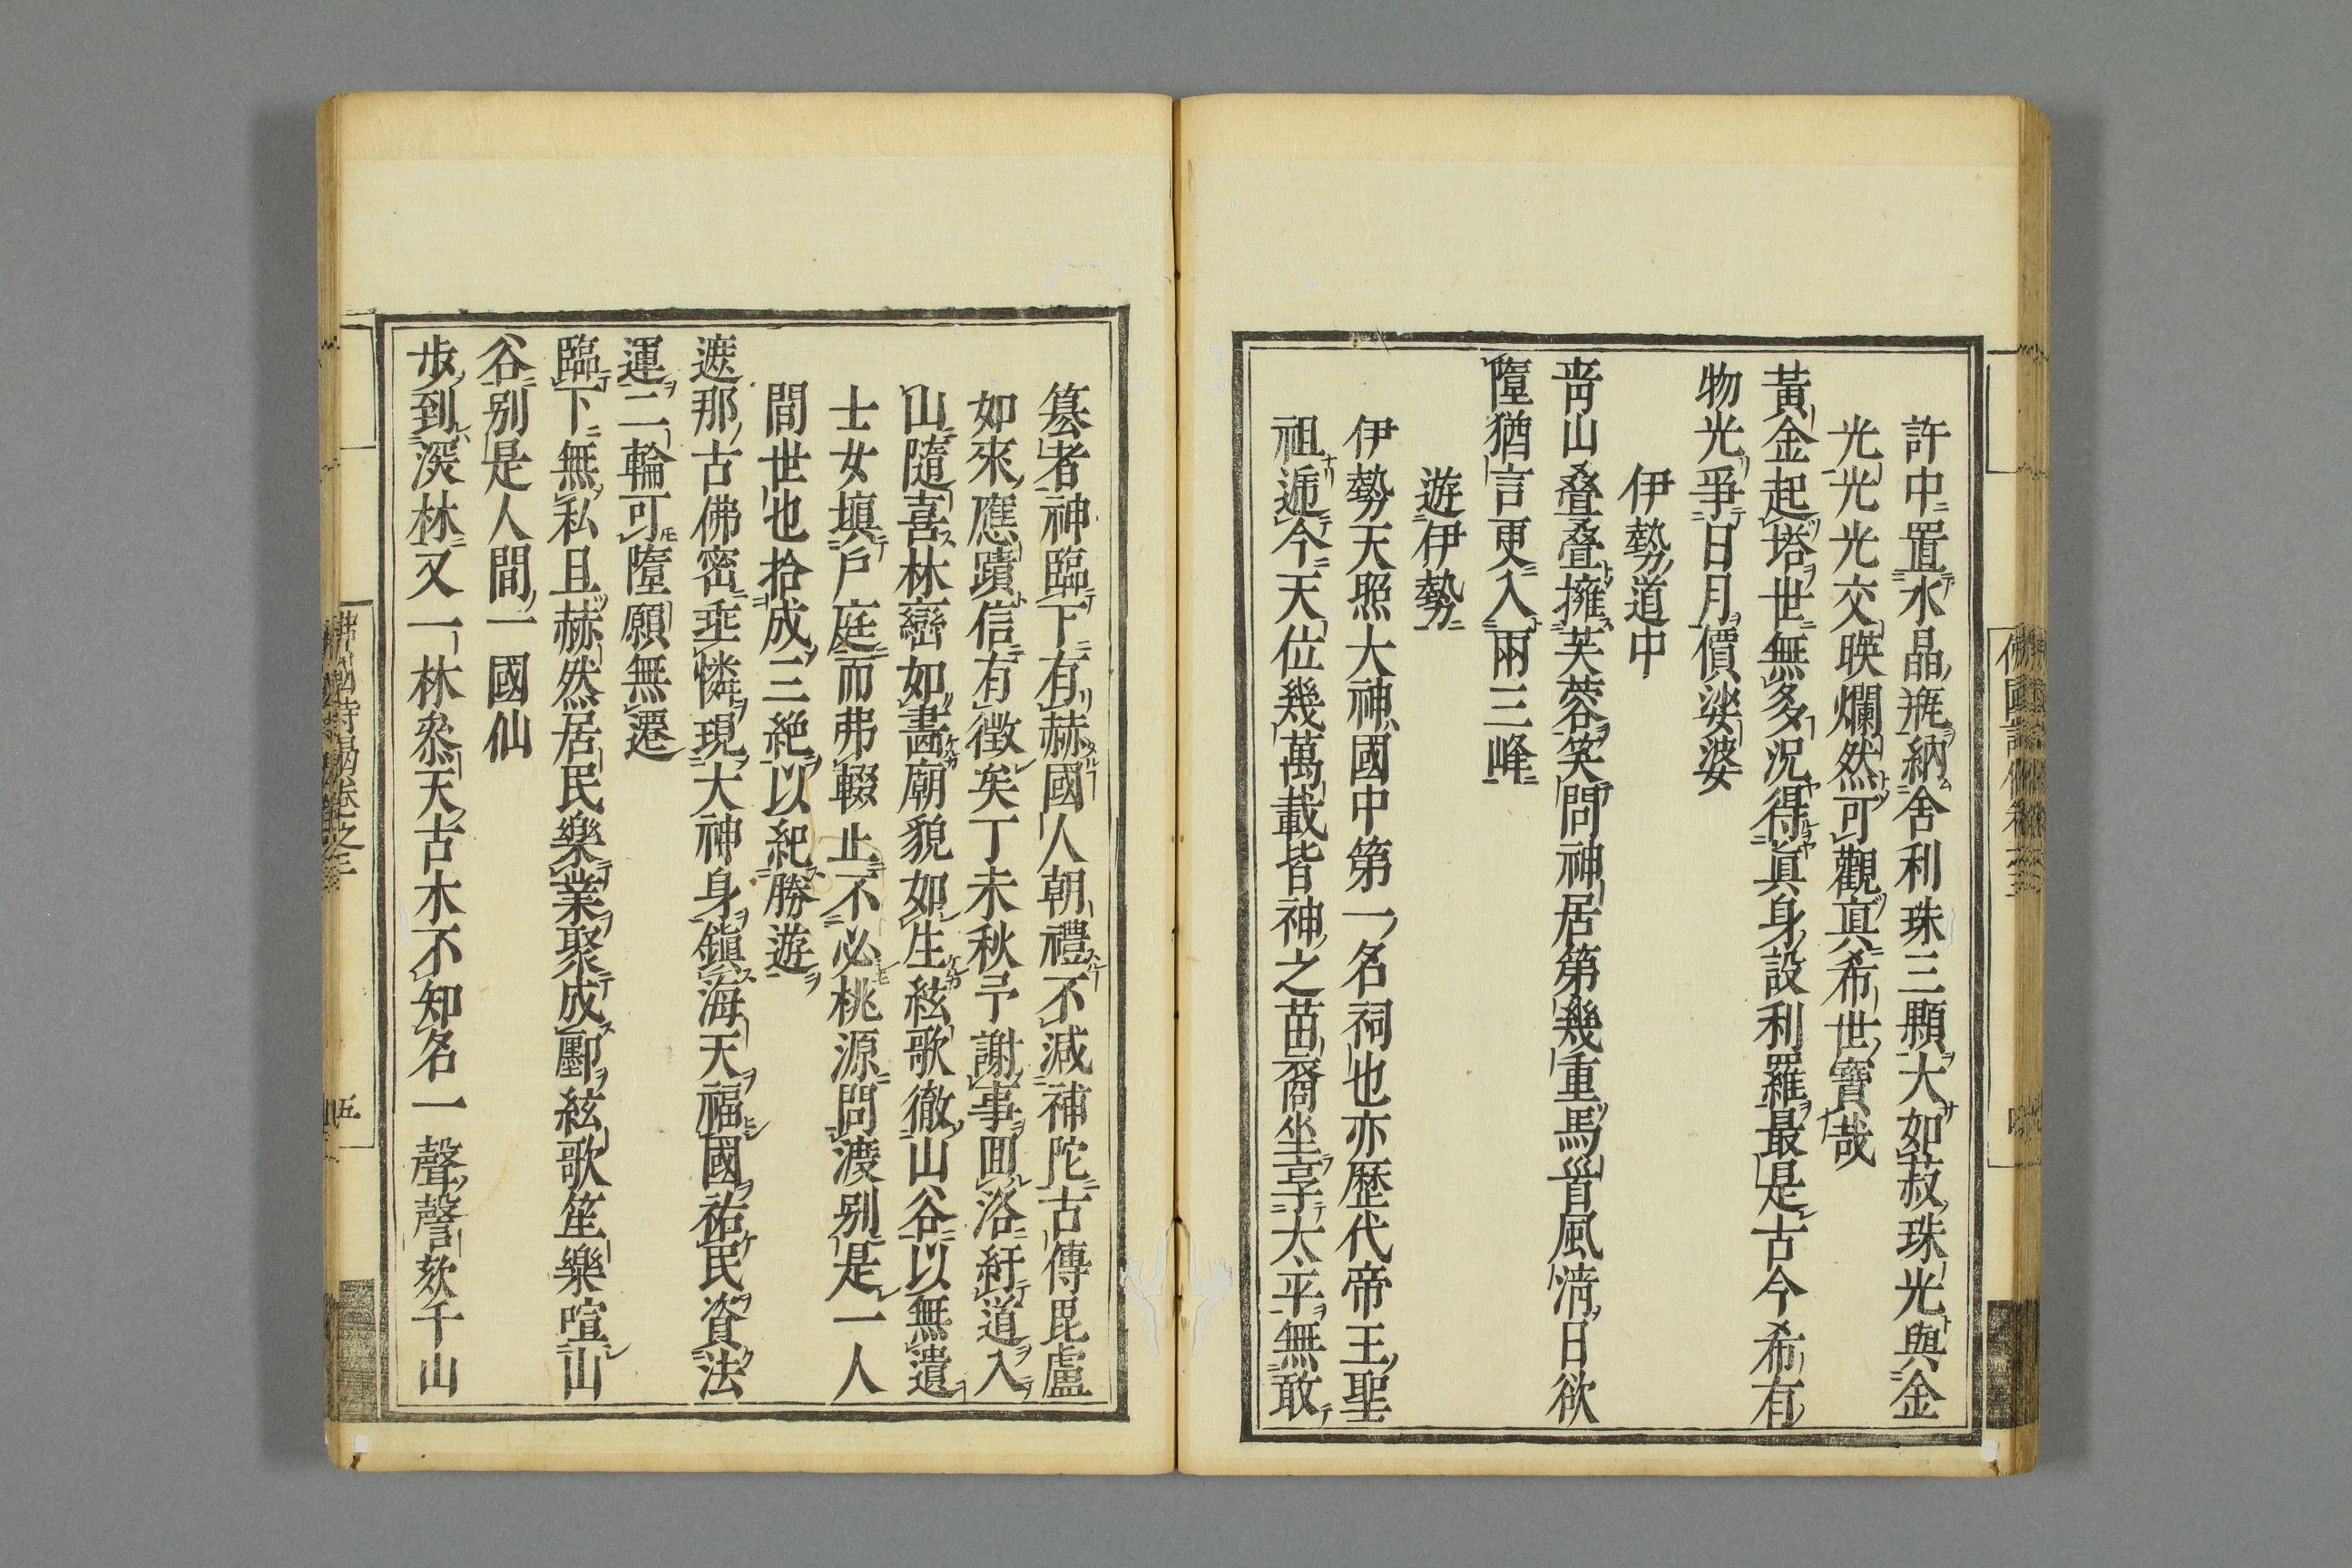 許中置水晶瓶納舍利珠三顆大如菽珠光與金
光光光交暎爛然可觀真希世寶哉
黃金起塔世無多況得真身設利羅最是古今希有
物光爭日月價娑婆
伊勢道中
青山叠叠擁芙蓉笑問神居第幾重馬首風淸日欲
墮猶言更入兩三峰
遊伊勢
伊勢天照大神國中第一名祠也亦歷代帝王聖
祖逓今天位幾萬載皆神之苗裔坐享太平無敢
篡者神臨下有赫國人朝禮不減補陀古傳毘盧
如來應蹟信有徵矣丁未秋予謝事囬洛紆道入
山隨喜林巒如畵廟貌如生絃歌徹山谷以無遺
士女塡戶庭而弗輟止不必桃源問渡别是一人
間世也拾成三絶以紀勝遊
遮那古佛密垂憐現大神身鎮海天福國祐民資法
運二輪可墮願無遷
臨下無私且赫然居民樂業聚成鄽絃歌笙樂喧山
谷别是人間一國仙
歩到深林又一林叅天古木不知名一聲謦欬千山
佛國詩偈卷之三
五